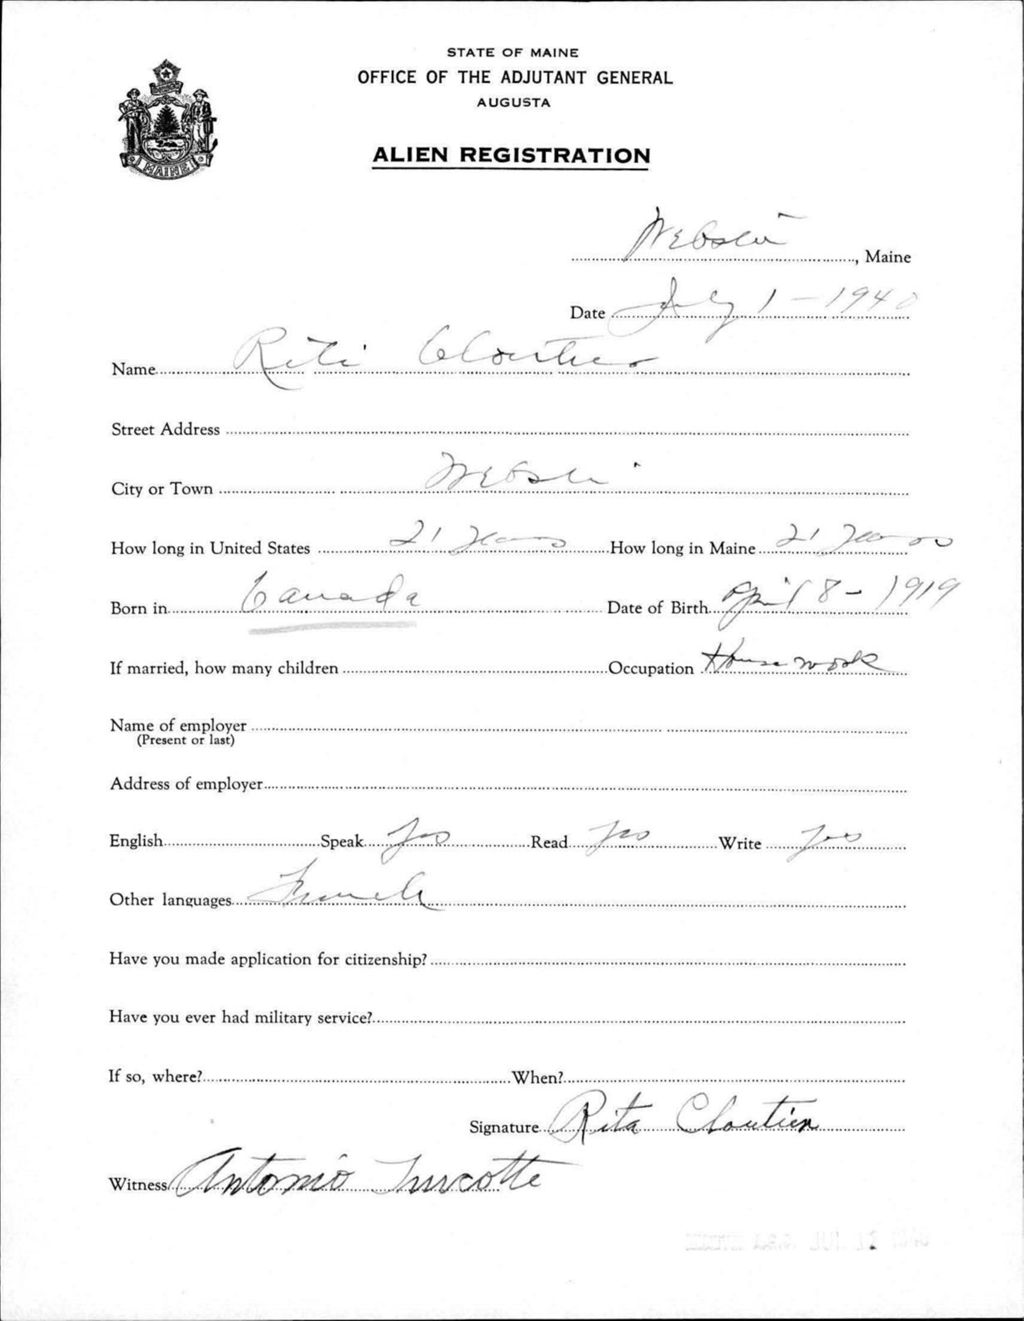 STATE OF MAINE
OFFICE OF THE ADJUTANT GENERAL
AUGUSTA
MAINE
ALIEN REGISTRATION
Webster, Maine
Date July 1 - 1940
Name Rita Cloutier
Street Address
City or Town Webster
How long in United States 21 Years How long in Maine 21 Years
Born in Canada Date of Birth April 8 - 1919
If married, how many children Occupation House work
Name of employer
(Present or last)
Address of employer
English Speak Yes Read Yes Write Yes
Other languages French
Have you made application for citizenship?
Have you ever had military service?
If so, where? When?
Signature Rita Cloutier
Witness Antonio Turcotte